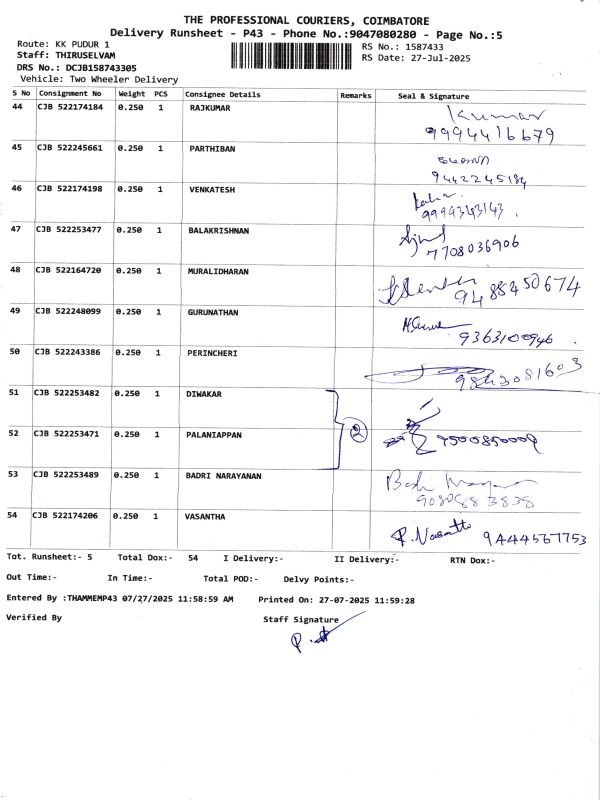 THE PROFESSIONAL COURIERS, COIMBATORE
Delivery Runsheet - P43 - Phone No.:9047080280 - Page No.:5
Route: KK PUDUR 1
RS No.: 1587433
Staff: THIRUSELVAM
RS Date: 27-Jul-2025
DRS No.: DCJB158743305
Vehicle: Two Wheeler Delivery
S No Consignment No Weight PCS Consignee Details Remarks Seal & Signature
44 CJB 522174184 0.250 1 RAJKUMAR Kumar
9994416679
45 CJB 522245661 0.250 1 PARTHIBAN
9442245184
46 CJB 522174198 0.250 1 VENKATESH
9994343143.
47 CJB 522253477 0.250 1 BALAKRISHNAN
7708036906
48 CJB 522164720 0.250 1 MURALIDHARAN
9488450674
49 CJB 522248099 0.250 1 GURUNATHAN
9363100946.
50 CJB 522243386 0.250 1 PERINCHERI
9843081603
51 CJB 522253482 0.250 1 DIWAKAR
2
52 CJB 522253471 0.250 1 PALANIAPPAN
53 CJB 522253489 0.250 1 BADRI NARAYANAN Badri
54 CJB 522174206 0.250 1 VASANTHA P. Vasantha 9444567753
Tot. Runsheet:- 5 Total Dox:- 54 I Delivery:- II Delivery:- RTN Dox:-
Out Time:- In Time:- Total POD:- Delvy Points:-
Entered By :THAMMEMP43 07/27/2025 11:58:59 AM Printed On: 27-07-2025 11:59:28
Verified By Staff Signature